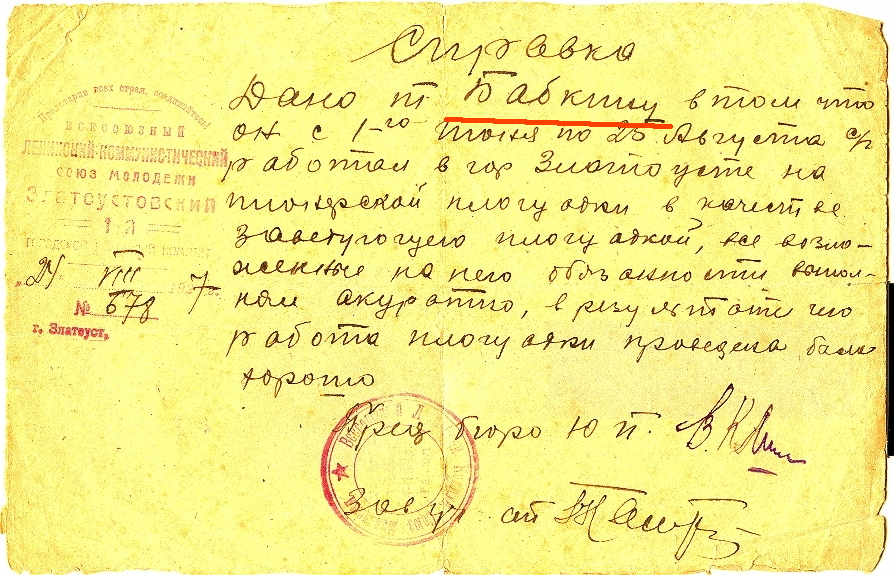 Справка
Пролетарии всех стран, соединяйтесь!
ВСЕСОЮЗНЫЙ
ЛЕНИНСКИЙ-КОММУНИСТИЧЕСКИЙ
СОЮЗ МОЛОДЕЖИ
ЗЛАТОУСТОВСКИЙ
1-й
КОМИТЕТ
VIII 192 7
№ 678
г. Златоуст,
Дано т Бабкину в том что
он с 1-го июня по 25 Августа с/г
работал в гор Златоусте на
пионерской площадки в качестве
заведующего площадкой, все возло-
женные на него обязанности выпол-
нял акуратно, в результате чего
работа площадки проведена была
хорошо
Пред бюро Ю П.
Зав